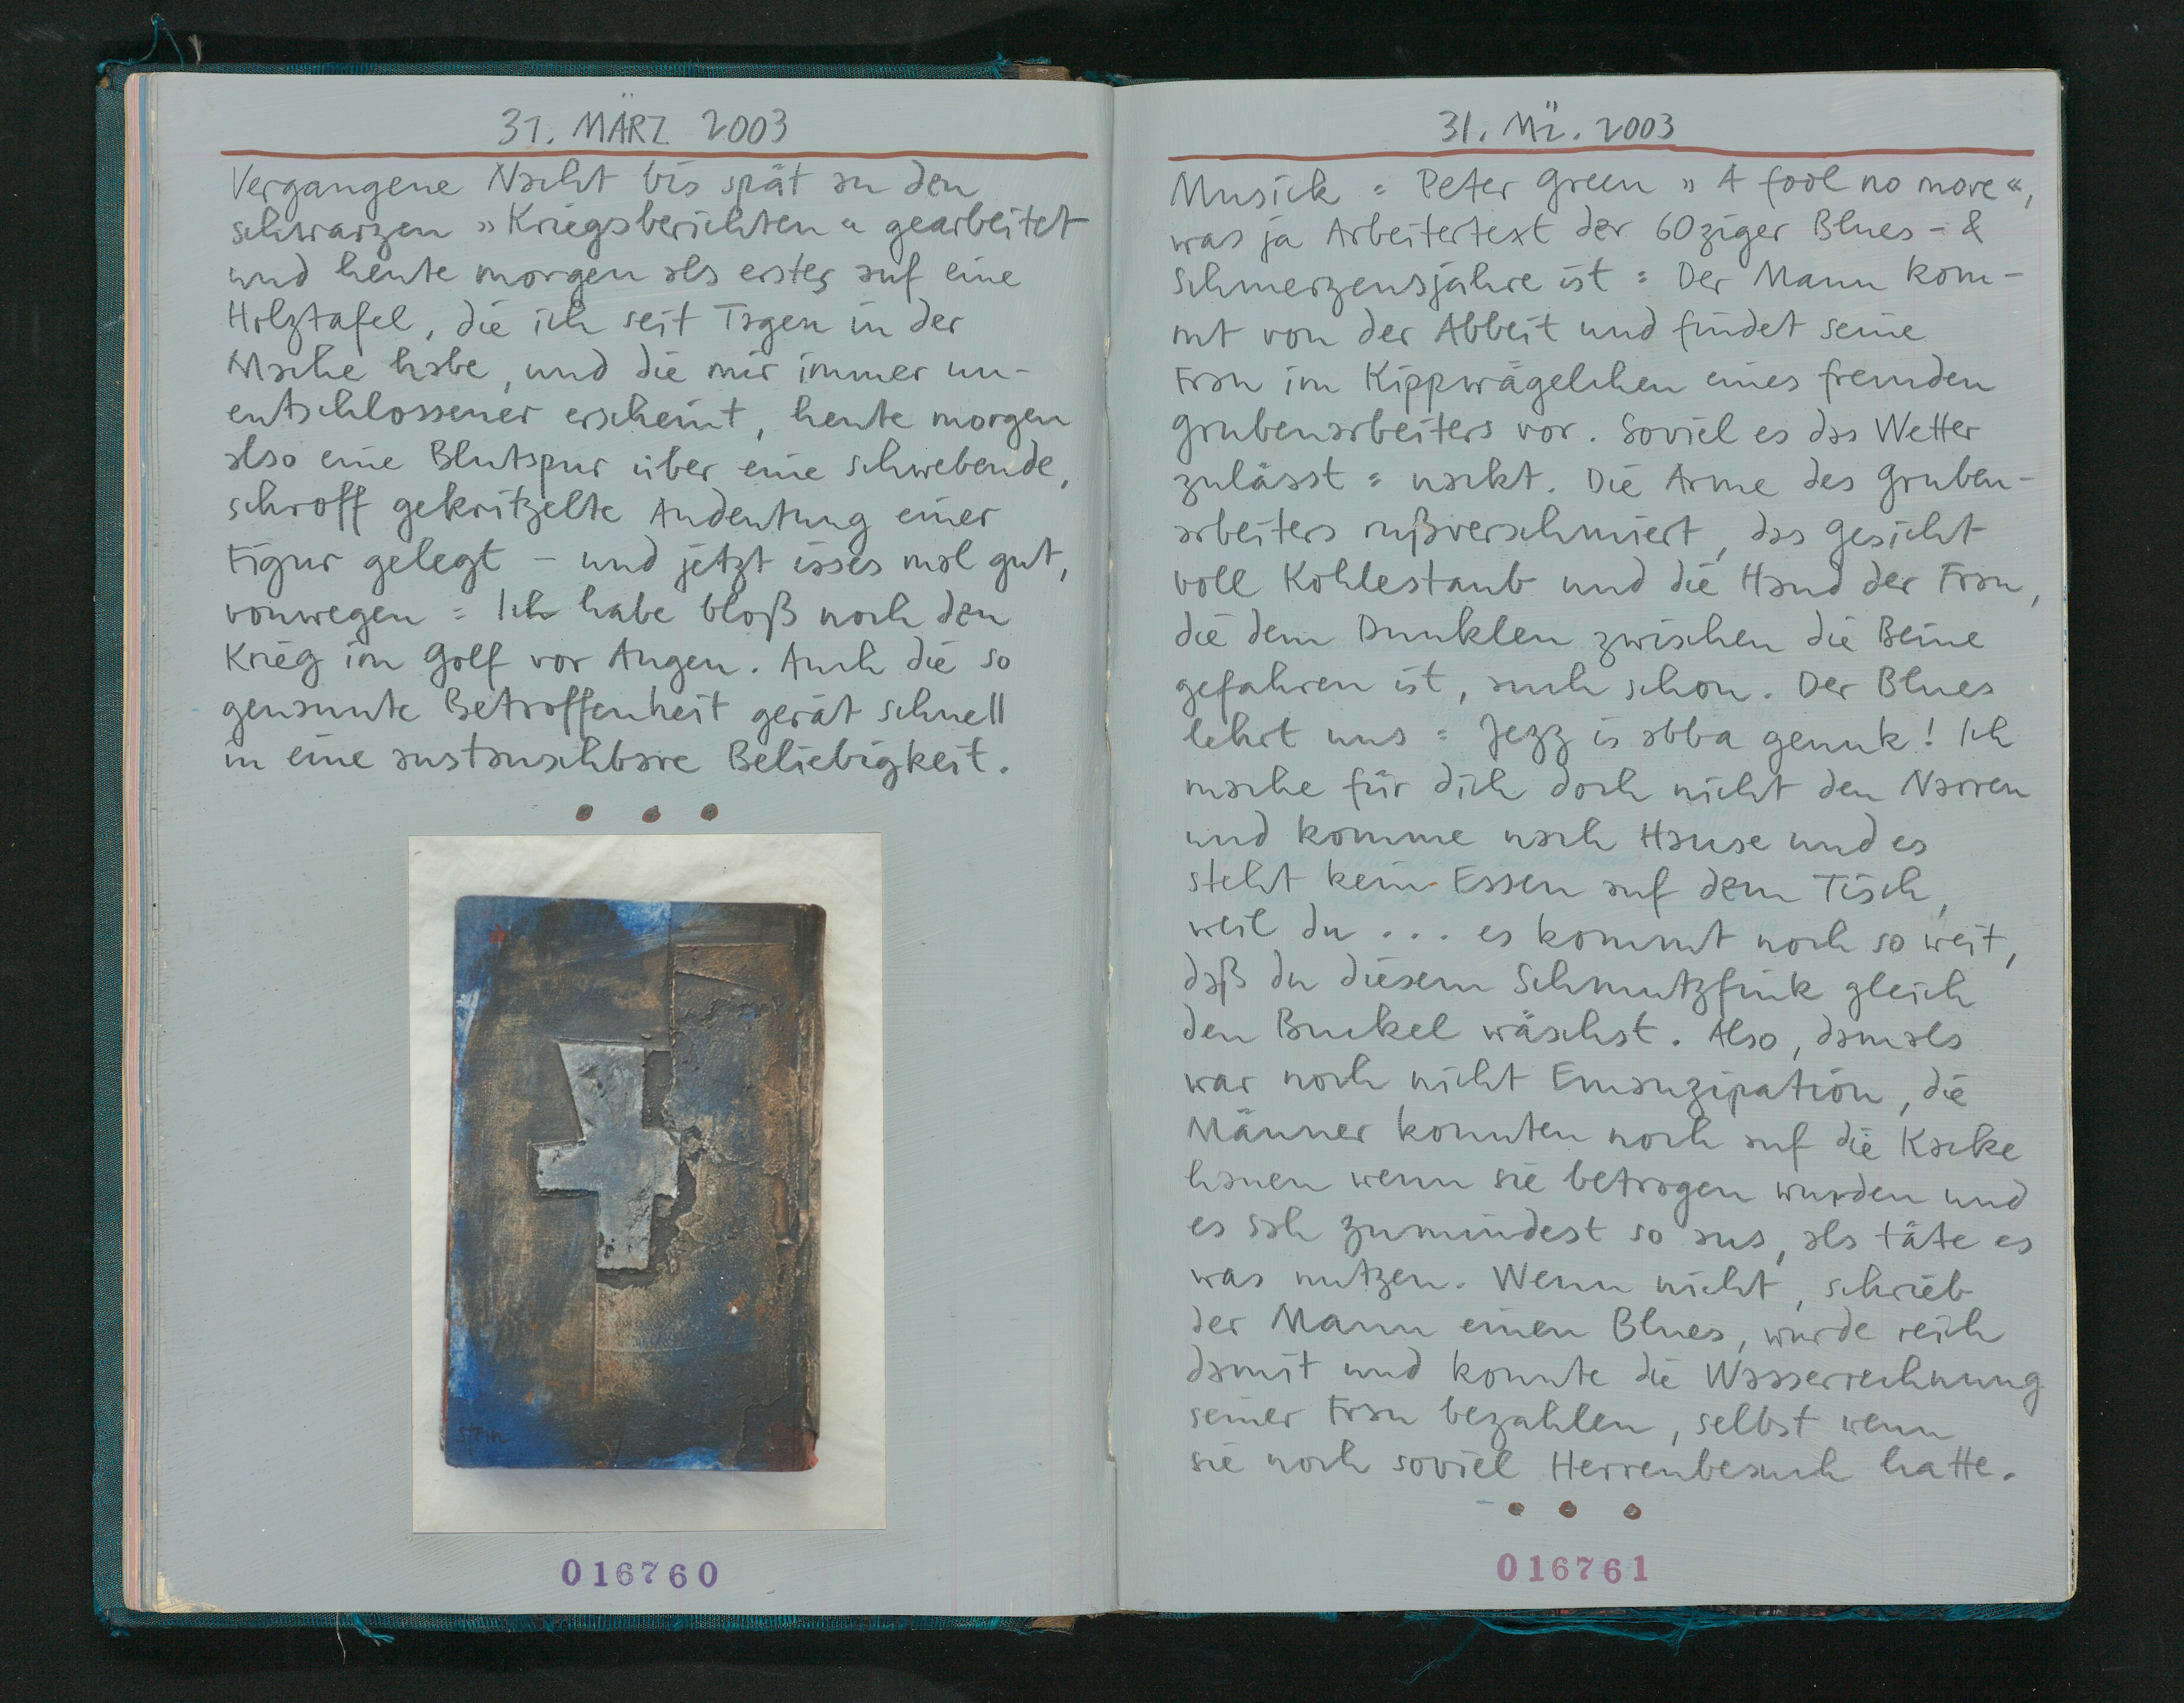 31. MÄRZ 2003
Vergangene Nacht bis spät an den
schwarzen »Kriegsberichten« gearbeitet
und heute morgen als erstes auf eine
Holztafel, die ich seit Tagen in der
Mache habe, und die mir immer un-
entschlossener erscheint, heute morgen
also eine Blutspur über eine schwebende,
schroff gekritzelte Andeutung einer
Figur gelegt – und jetzt isses mal gut,
vonwegen = Ich habe bloß noch den
Krieg im Golf vor Augen. Auch die so
genannte Betroffenheit gerät schnell
in eine austauschbare Beliebigkeit.
stein
016760
31. Mä. 2003
Musick = Peter Green »A fool no more«,
was ja Arbeitertext der 60ziger Blues- &
Schmerzensjahre ist = Der Mann kom-
mt von der Abbeit und findet seine
Frau im Kippwägelchen eines fremden
Grubenarbeiters vor. Soviel es das Wetter
zulässt = nackt. Die Arme des Gruben-
arbeiters rußverschmiert, das Gesicht
voll Kohlestaub und die Hand der Frau,
die dem Dunklen zwischen die Beine
gefahren ist, auch schon. Der Blues
lehrt uns = Jezz is abba genuk! Ich
mache für dich doch nicht den Narren
und komme nach Hause und es
steht kein Essen auf dem Tisch,
weil du ... es kommt noch so weit,
daß du diesem Schmutzfink gleich
den Buckel wäschst. Also, damals
war noch nicht Emanzipation, die
Männer konnten noch auf die Kacke
hauen wenn sie betrogen wurden und
es sah zumindest so aus, als täte es
was nutzen. Wenn nicht, schrieb
der Mann einen Blues, wurde reich
damit und konnte die Wasserrechnung
seiner Frau bezahlen, selbst wenn
sie noch soviel Herrenbesuch hatte.
016761